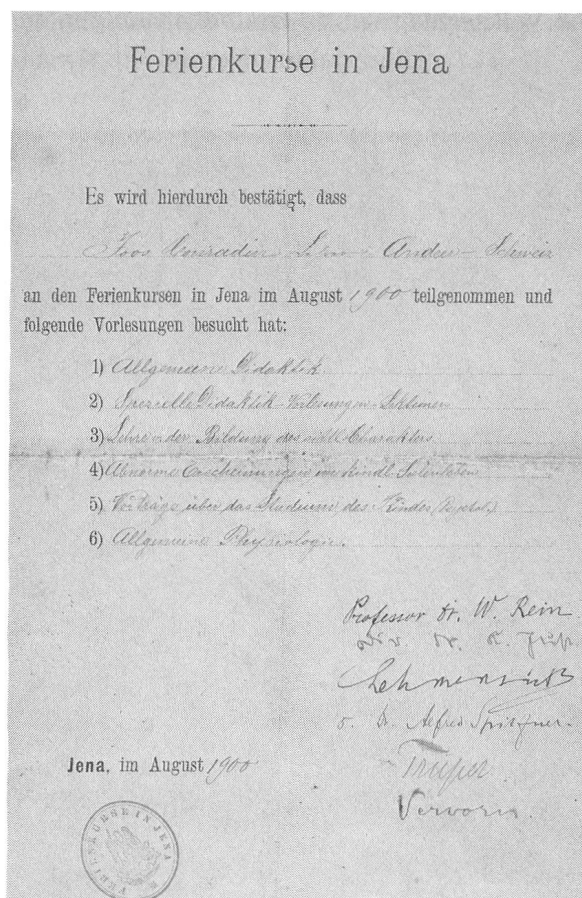 Ferienkurse in Jena
Es wird hierdurch bestätigt, dass
Joos Conradin Andeer Schweiz
an den Ferienkursen in Jena im August 1900 teilgenommen und
folgende Vorlesungen besucht hat:
1) Allgemeine Didaktik
2) Spezielle Didaktik
3) Lehre v. der Bildung des sittl. Charakters
4) Abnorme Erscheinungen im kindl. Seelenleben
5) Vorträge über das Studium des Kindes
6) Allgemeine Physiologie.
Professor Dr. W. Rein
Dr.
Lehmensick
Dr. Alfred Spitzner.
Jena, im August 1900
Trüper.
Verworn.
FERIENKURSE IN JENA